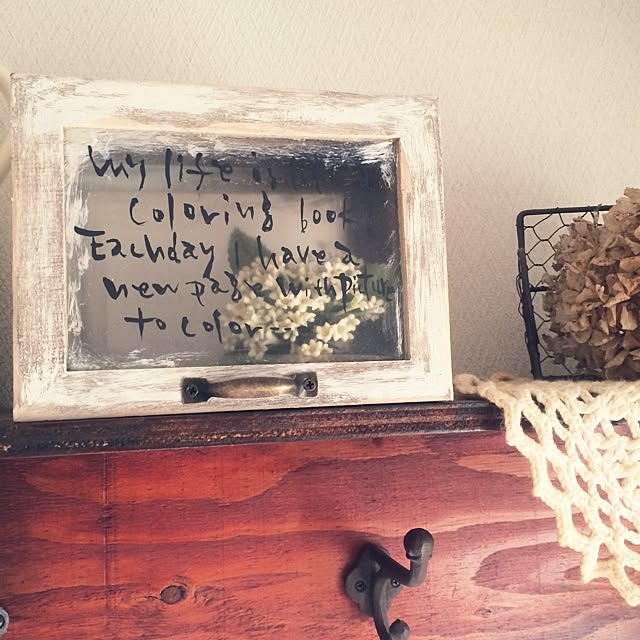 My life is like a
coloring book
Eachday I have a
new page with pictures
to color...